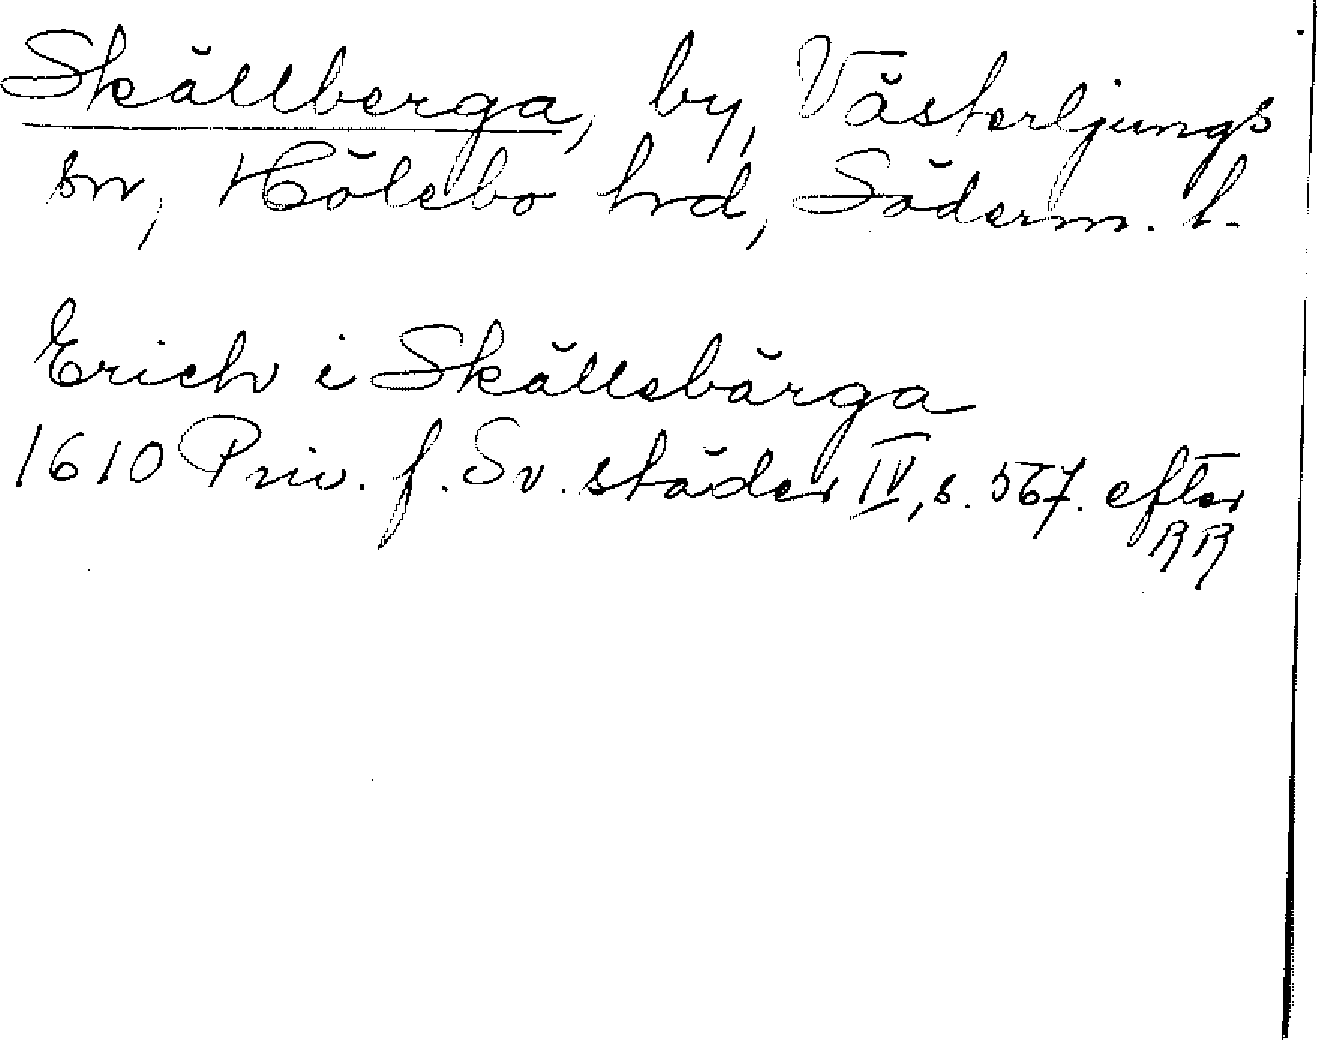 Skällberga, by, Västerljungs
sn, Hölebo hrd, Söderm. l.
Erich i Skällsbärga
1610 Priv. f. Sv. städer IV, s. 567. efter
RR